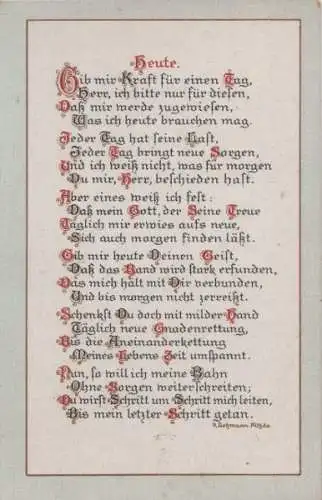 Heute.
Gib mir Kraft für einen Tag,
Herr, ich bitte nur für diesen,
Daß mir werde zugewiesen,
Was ich heute brauchen mag.
Jeder Tag hat seine Last,
Jeder Tag bringt neue Sorgen,
Und ich weiß nicht, was für morgen
Du mir, Herr, beschieden hast.
Aber eines weiß ich fest:
Daß mein Gott, der Seine Treue
Täglich mir erwies aufs neue,
Sich auch morgen finden läßt.
Gib mir heute Deinen Geist,
Daß das Band wird stark erfunden,
Das mich hält mit Dir verbunden,
Und bis morgen nicht zerreißt.
Schenkst Du doch mit milder Hand
Täglich neue Gnadenrettung,
Bis die Aneinanderkettung
Meines Lebens Zeit umspannt.
Nun, so will ich meine Bahn
Ohne Sorgen weiterschreiten;
Du wirst Schritt um Schritt mich leiten,
Bis mein letzter Schritt getan.